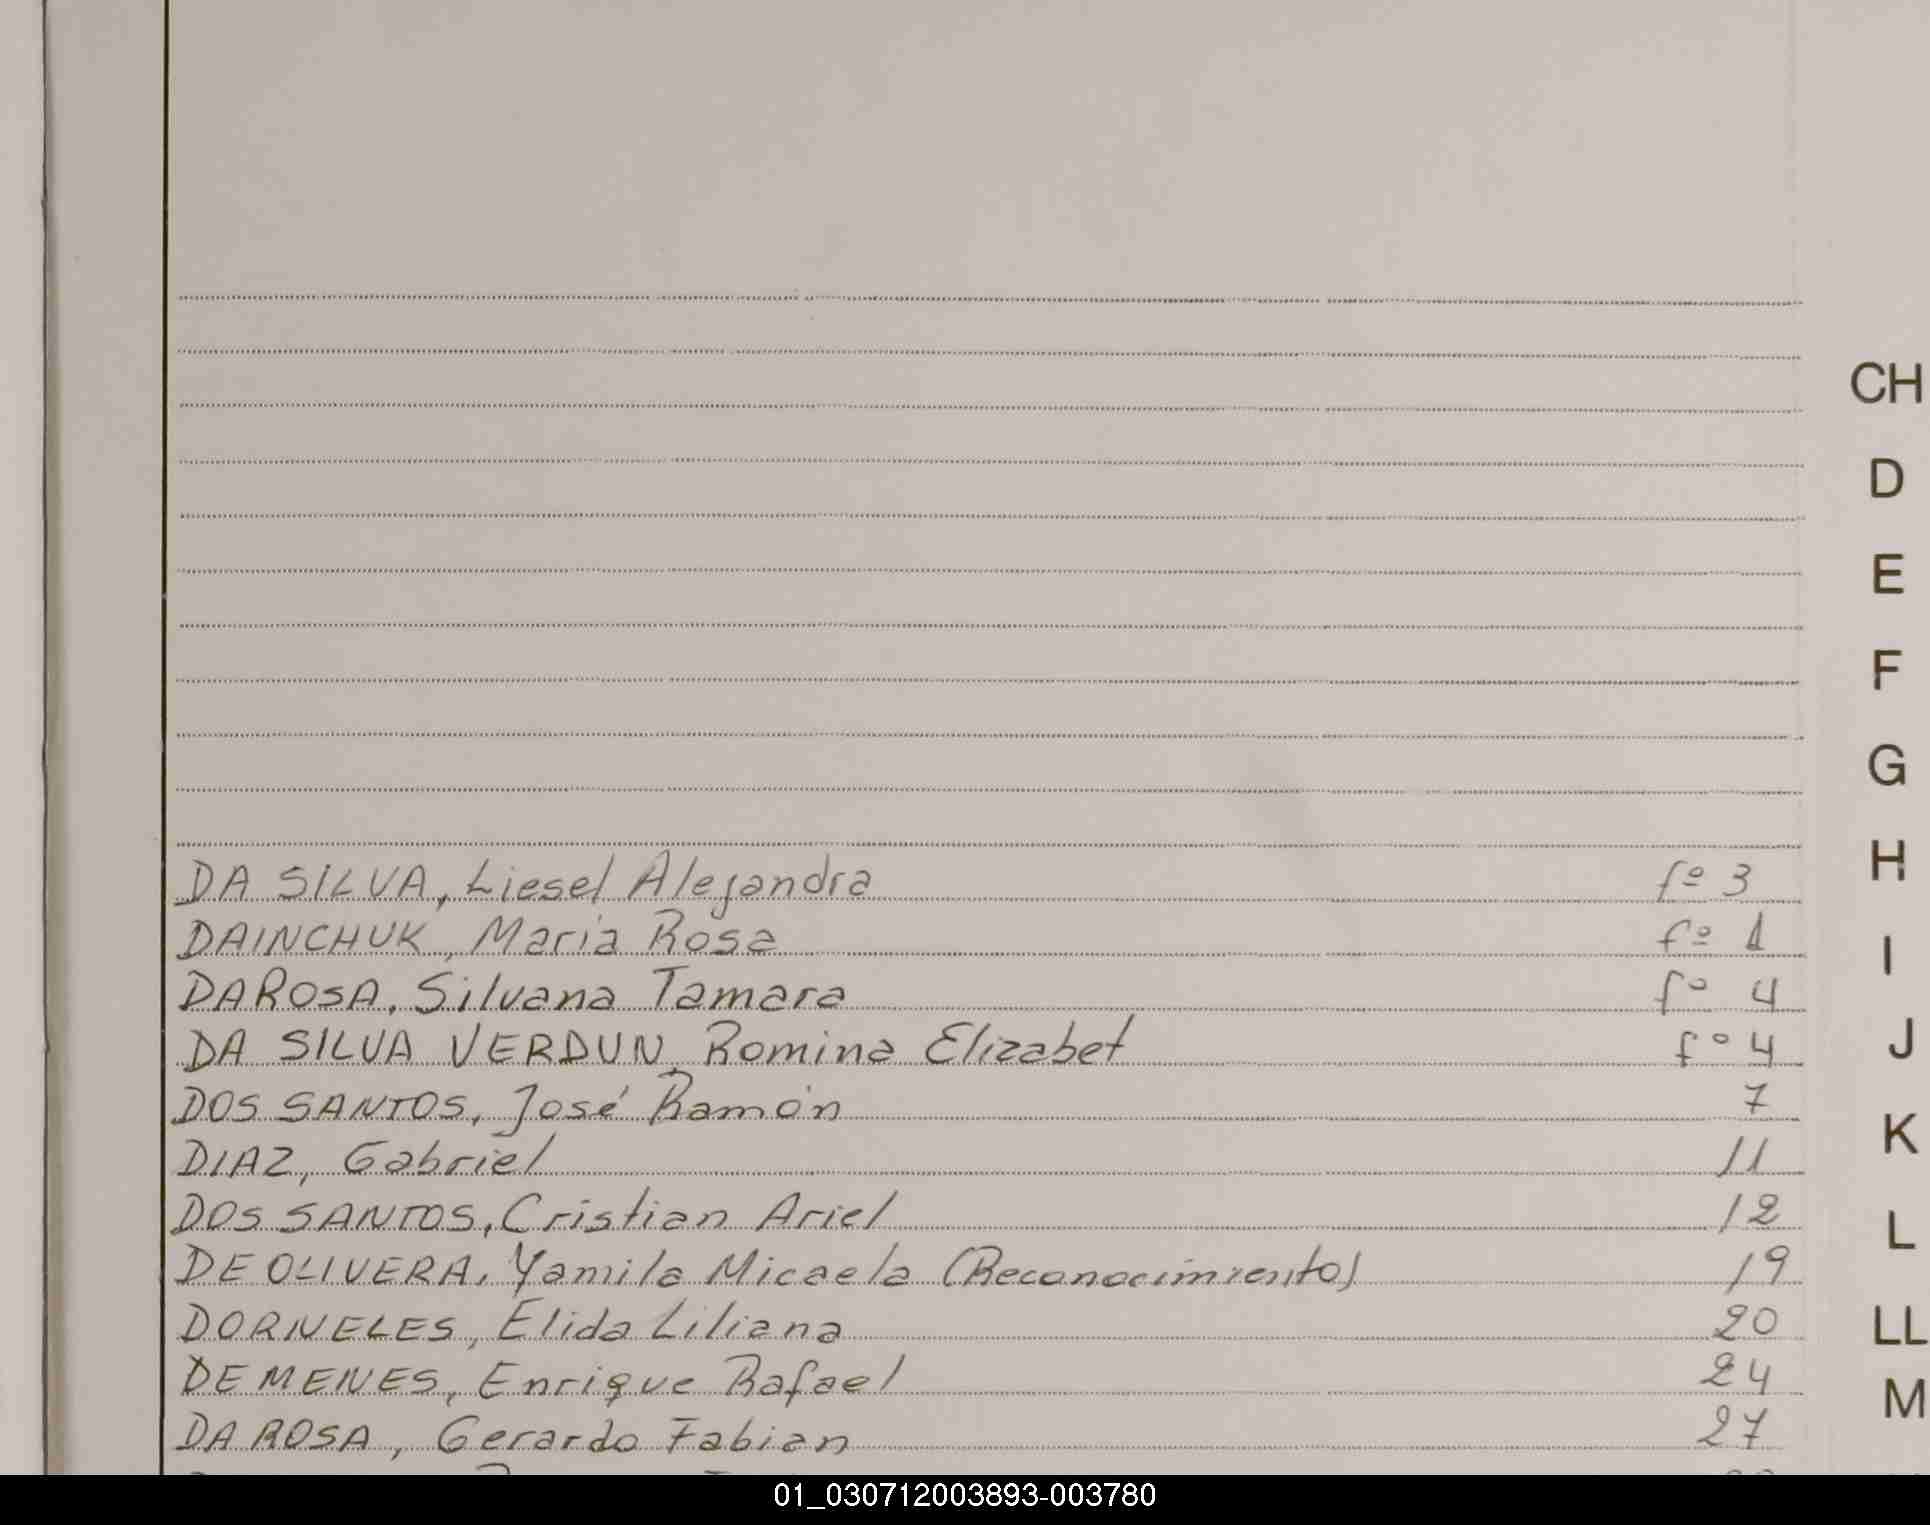 CH
D
E
F
G
H
I
J
K
L
LL
M
DA SILVA, Liesel Alejandra fº 3
DAINCHUK, Maria Rosa fº 1
DA ROSA, Silvana Tamara fº 4
DA SILVA VERDUN, Romina Elizabet fº 4
DOS SANTOS, José Ramón 7
DIAZ, Gabriel 11
DOS SANTOS, Cristian Ariel 12
DE OLIVERA, Yamila Micaela (Reconocimiento) 19
DORNELES, Elida Liliana 20
DE MENES, Enrique Rafael 24
DA ROSA, Gerardo Fabian 27
01_030712003893-003780